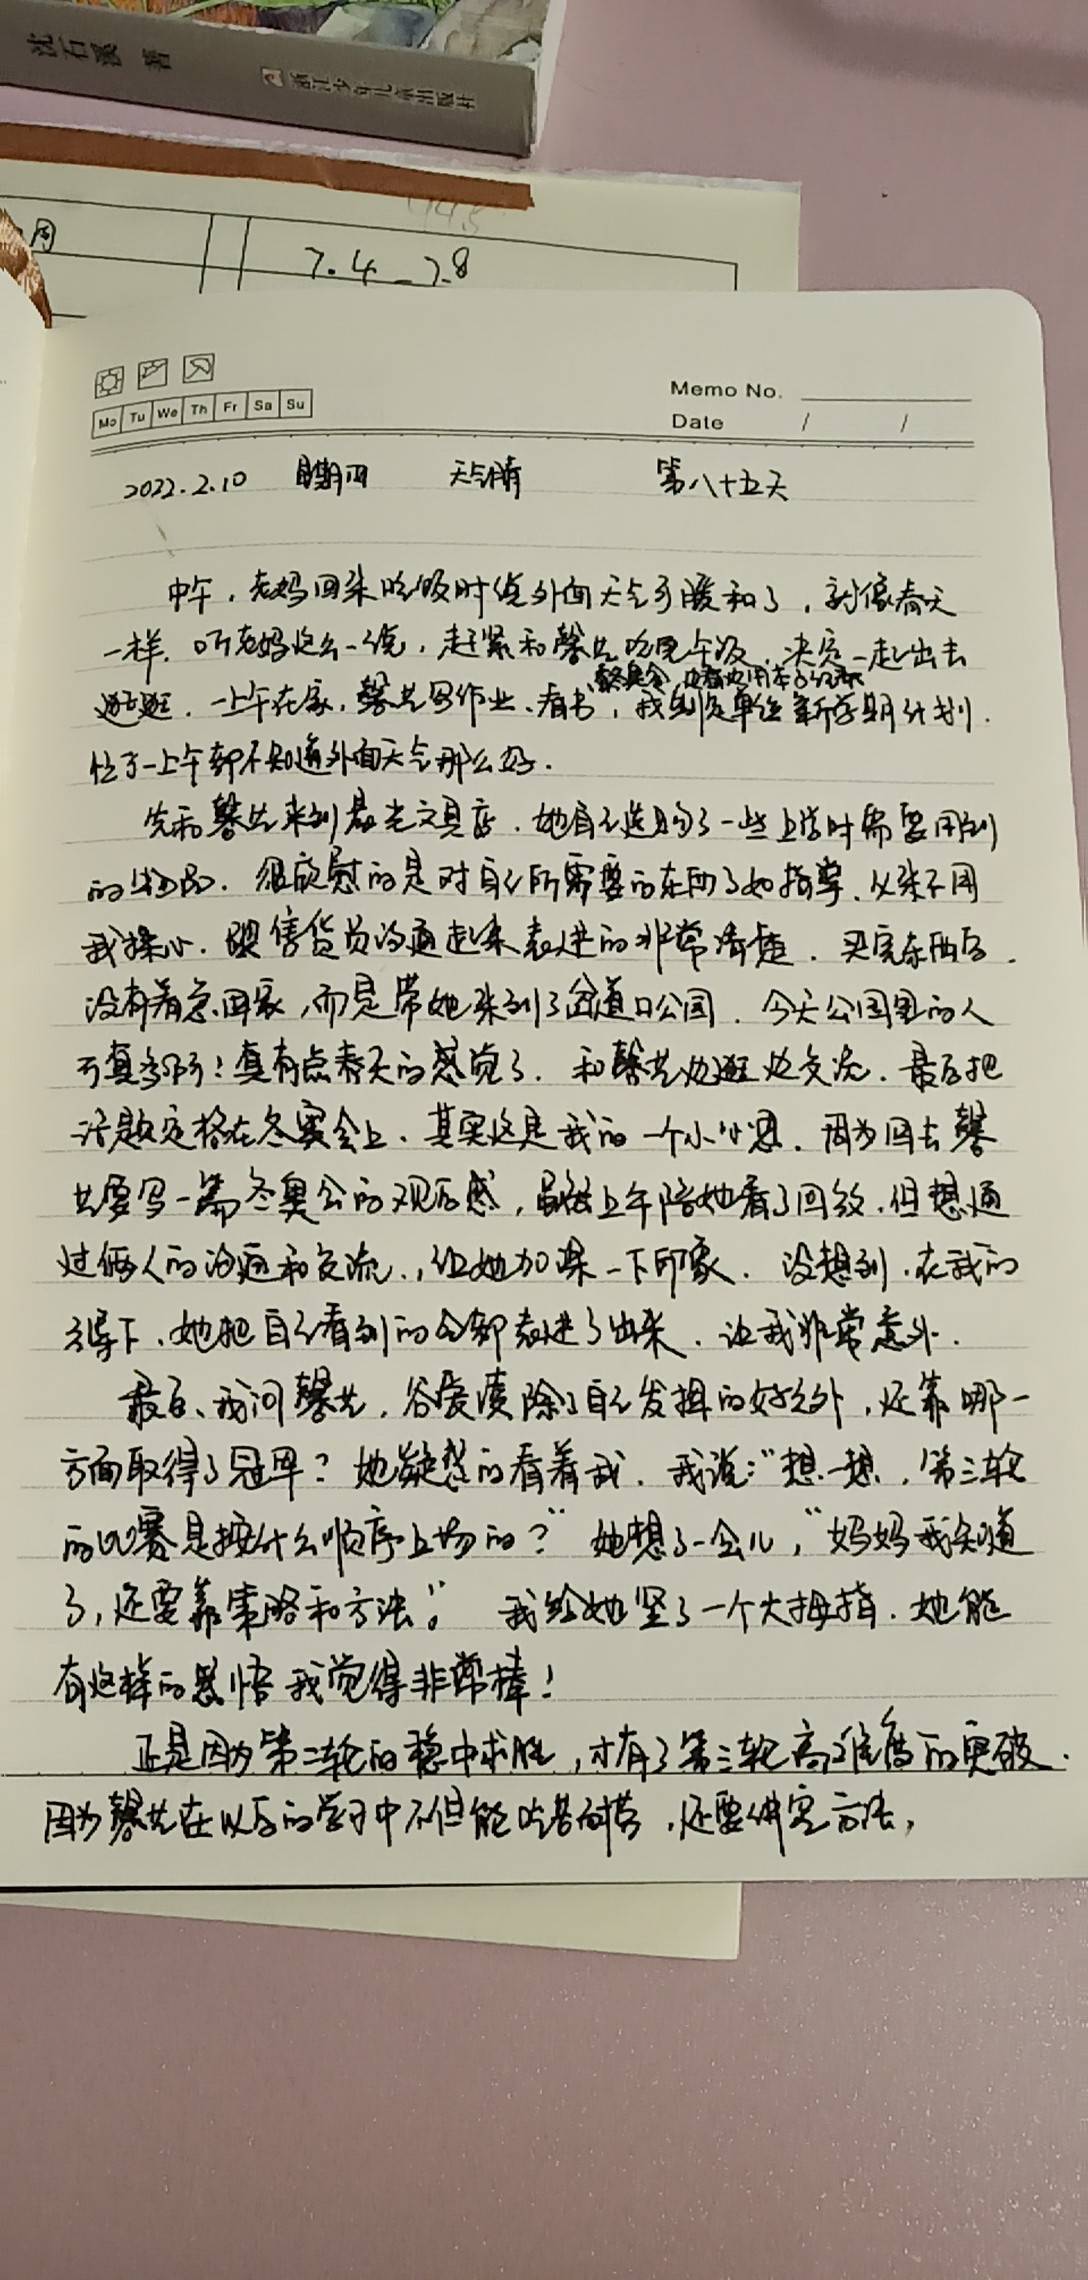 沈石溪 著
浙江少年儿童出版社
周
7.4-7.8
Mo Tu We Th Fr Sa Su
Memo No.
Date / /
2022.2.10 星期四 天气晴 第八十五天
中午，老妈回来吃饭时说外面天气可暖和了，就像春天
一样。听老妈这么一说，赶紧和馨艺吃完午饭，决定一起出去
逛逛。一上午在家，馨艺写作业、看书，我制定单位新学期计划。
看冬奥会，边看边用本子记录
忙了一上午都不知道外面天气那么好。
先和馨艺来到晨光文具店，她自己选购了一些上学时需要用到
的物品。很欣慰的是对自己所需要的东西了如指掌，从来不用
我操心。跟售货员沟通起来表达的非常清楚。买完东西后，
没有着急回家，而是带她来到了岔道口公园。今天公园里的人
可真多呀！真有点春天的感觉了。和馨艺边逛边交流，最后把
话题定格在冬奥会上，其实这是我的一个小心思，因为回去馨
艺要写一篇冬奥会的观后感，虽然上午陪她看了回放，但想通
过俩人的沟通和交流，让她加深一下印象。没想到，在我的
引导下，她把自己看到的全都表达了出来，让我非常意外。
最后，我问馨艺，谷爱凌除了自己发挥的好之外，还靠哪一
方面取得了冠军？她疑惑的看着我，我说：“想一想，第三轮
的比赛是按什么顺序上场的？”她想了一会儿，“妈妈我知道
了，还要靠策略和方法。”我给她竖了一个大拇指，她能
有这样的感悟我觉得非常棒！
正是因为第二轮的稳中求胜，才有了第三轮高难度的突破。
因为馨艺在以后的学习中不但能吃苦耐劳，还要讲究方法，